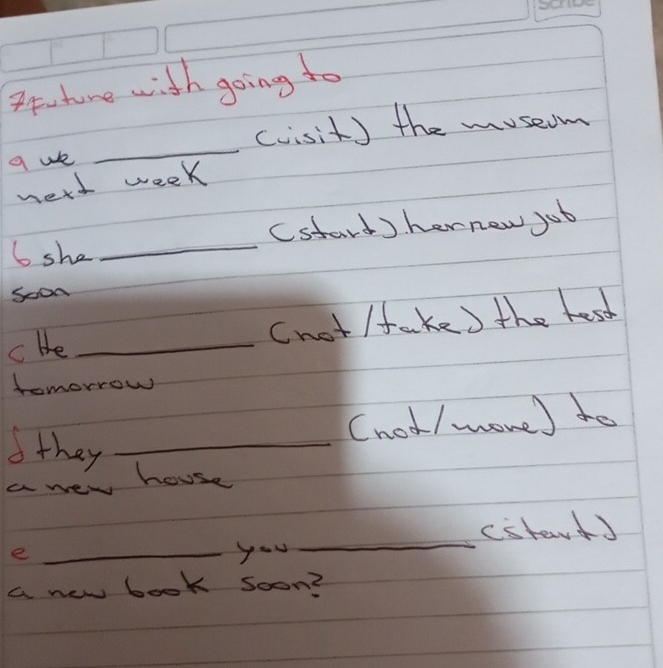 Scribe
7 Future with going to
a we ________ (visit) the museum
next week
b she ________ (start) her new job
soon
c He ________ (not/take) the test
tomorrow
d they ________ (not/move) to
a new house
e ________ you ________ (start)
a new book soon?